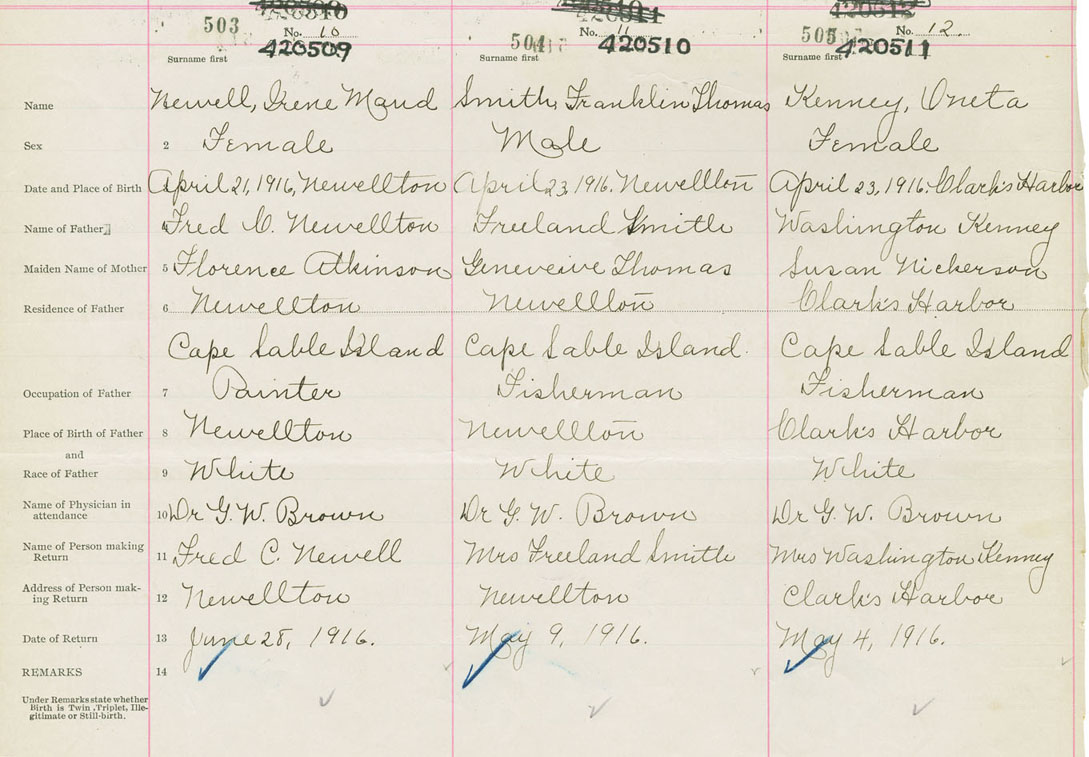 503 504 505
No. 10 No. 11 No. 12.
420509 420510 420511
Surname first Surname first Surname first
Name Newell, Irene Maud Smith, Franklin Thomas Kenney, Oneta
Sex 2 Female Male Female
Date and Place of Birth April 21, 1916, Newellton April 23, 1916. Newellton April 23, 1916. Clark's Harbor
Name of Father Fred C. Newellton Freeland Smith Washington Kenney
Maiden Name of Mother 5 Florence Atkinson Geneveive Thomas Susan Nickerson
Residence of Father 6 Newellton Newellton Clark's Harbor
Cape Sable Island Cape Sable Island. Cape Sable Island
Occupation of Father 7 Painter Fisherman Fisherman
Place of Birth of Father 8 Newellton Newellton Clark's Harbor
and
Race of Father 9 White White White
Name of Physician in
attendance 10 Dr G. W. Brown Dr G. W. Brown Dr G. W. Brown
Name of Person making
Return 11 Fred C. Newell Mrs Freeland Smith Mrs Washington Kenney
Address of Person mak-
ing Return 12 Newellton Newellton Clark's Harbor
Date of Return 13 June 28, 1916. May 9, 1916. May 4, 1916.
REMARKS 14
Under Remarks state whether
Birth is Twin, Triplet, Ille-
gitimate or Still-birth.